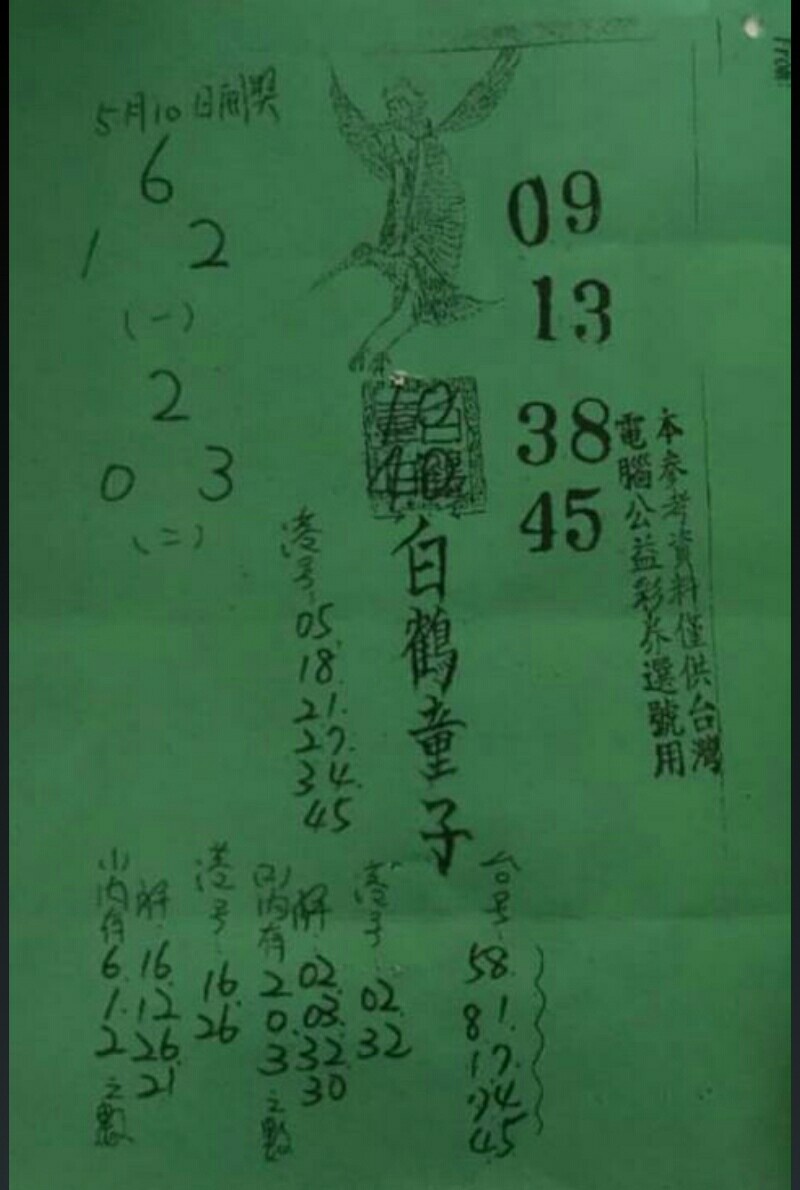 5月10日開獎
6
1 2
(一)
2
0 3
(二)
09
13
38
45
10
40
本參考資料僅供台灣
電腦公益彩券選號用
白鶴童子
港号
05.
18.
21.
27.
34.
45
(1)內有
6.
1.
2
之數
解
16.
12
26.
21
港号
16.
26
(2)內有
2
0.
3
之數
解
02.
03.
32
30
港号
02.
32
台号
58.
81.
17.
94
45